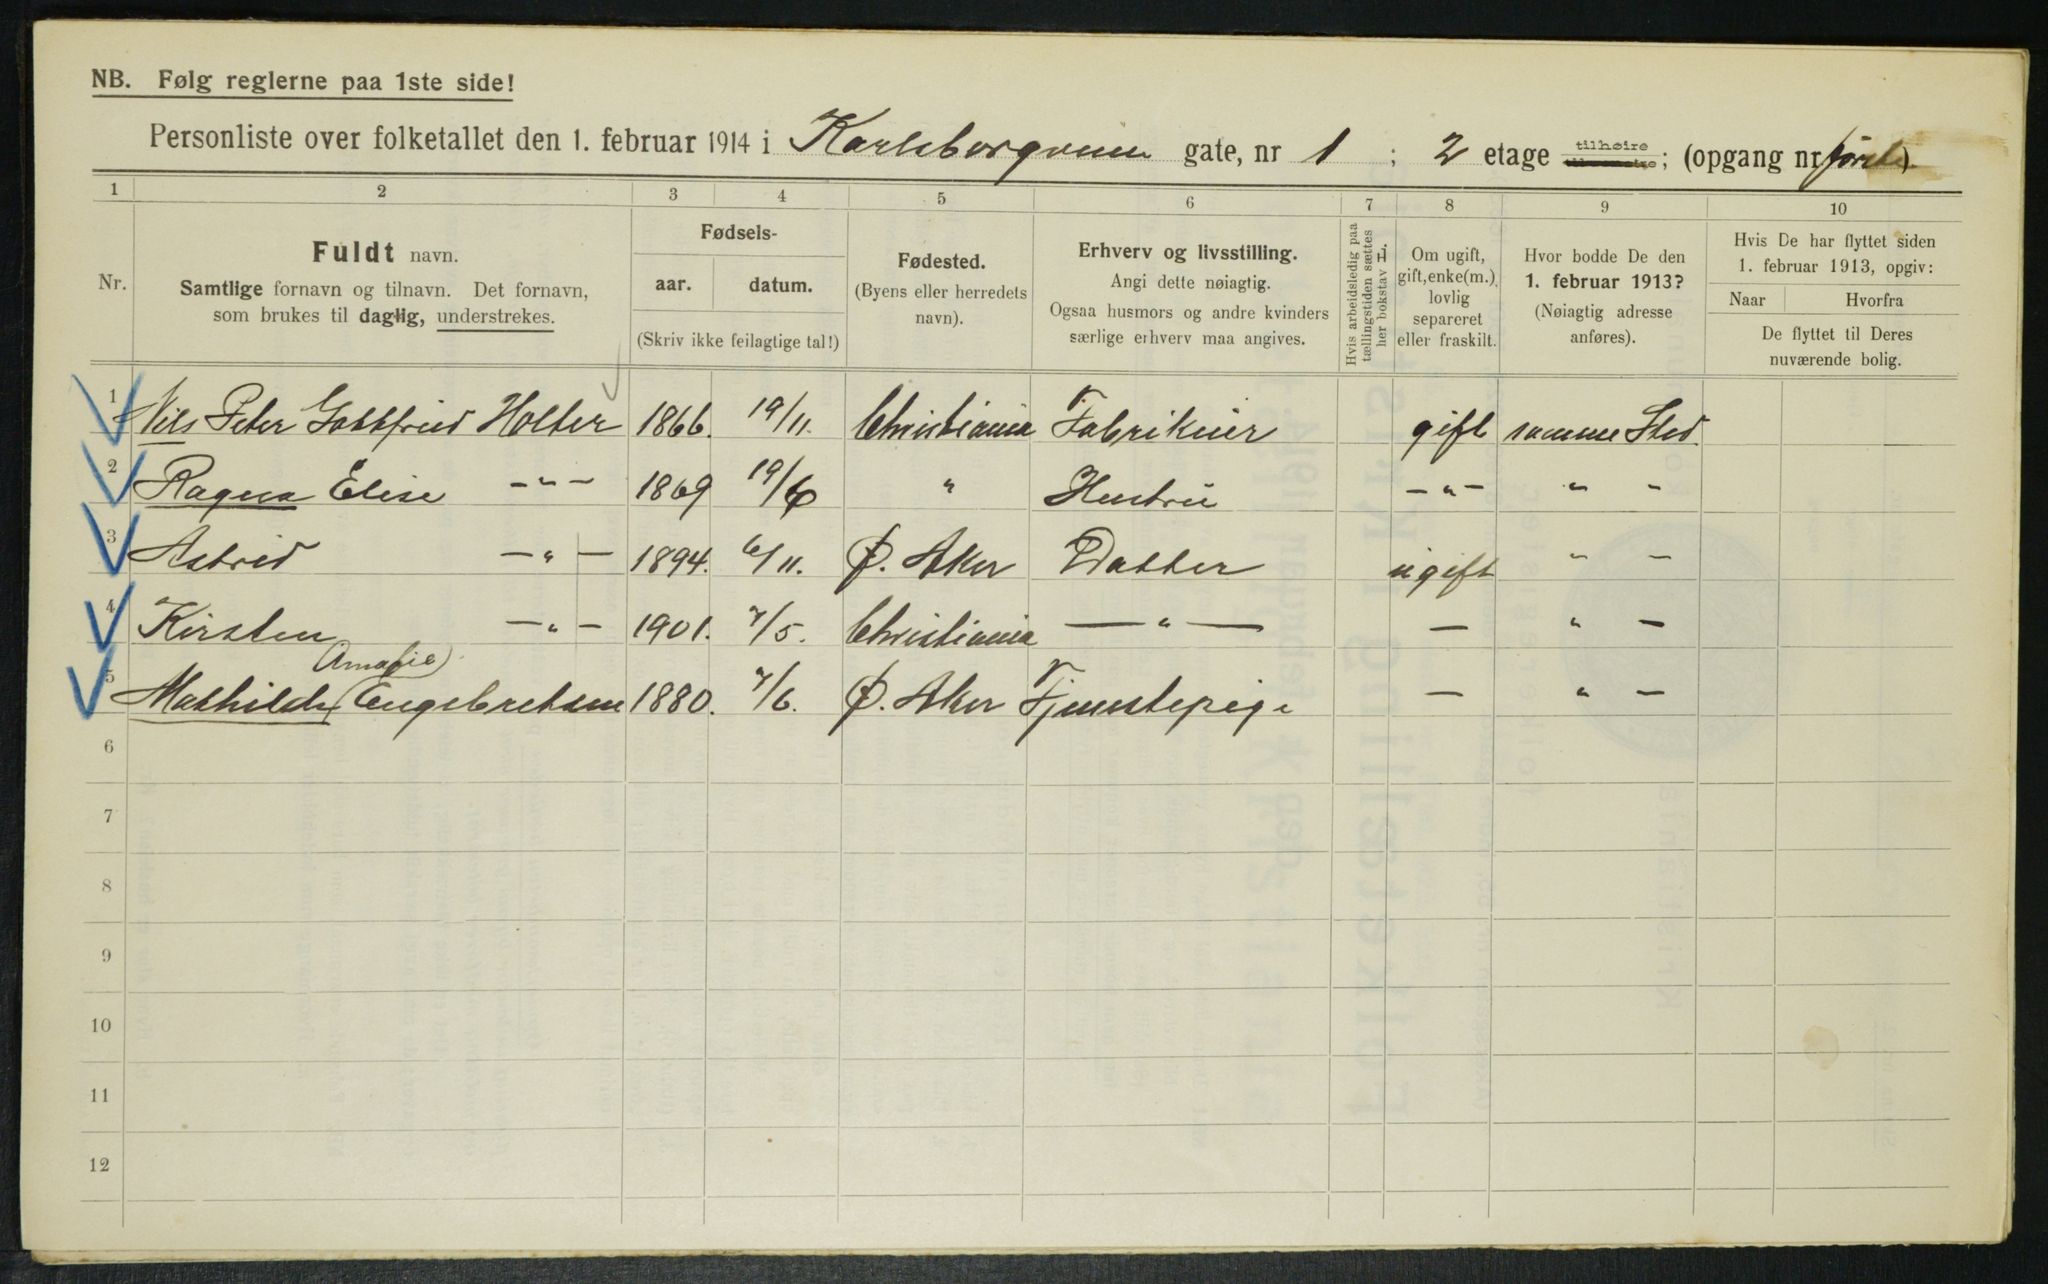 NB. Følg reglerne paa 1ste side!
Personliste over folketallet den 1. februar 1914 i Karlsborgveien gate, nr 1 ; 2 etage tilhøire tilvenstre; (opgang nr første)
1 2 3 4 5 6 7 8 9 10
Nr.
Fuldt navn.
Samtlige fornavn og tilnavn. Det fornavn,
som brukes til daglig, understrekes.
Fødsels-
aar. datum.
(Skriv ikke feilagtige tal!)
Fødested.
(Byens eller herredets
navn).
Erhverv og livsstilling.
Angi dette nøiagtig.
Ogsaa husmors og andre kvinders
særlige erhverv maa angives.
Hvis arbeidsledig paa
tællingstiden sættes
her bokstav L.
Om ugift,
gift, enke(m.),
lovlig
separeret
eller fraskilt.
Hvor bodde De den
1. februar 1913?
(Nøiagtig adresse
anføres).
Hvis De har flyttet siden
1. februar 1913, opgiv:
Naar Hvorfra
De flyttet til Deres
nuværende bolig.
1 Nils Peter Gottfried Holter 1866. 19/11. Christiania Fabrikeier gift samme Sted.
2 Ragna Elise -"- 1869 19/6 " Hustru -"- " "
3 Astrid -"- 1894. 6/11. Ø. Aker Datter ugift " -
4 Kirsten -"- 1901. 7/5. Christiania -"- - " -
5 Mathilde (Amalie) Engebretsen 1880. 7/6. Ø. Aker Tjenestepige - " -
6
7
8
9
10
11
12